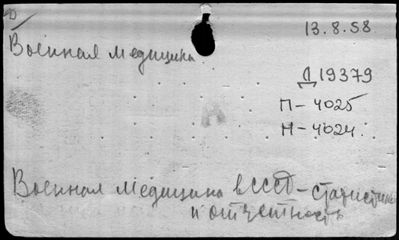 13.8.58
Военная медицина
Д 19379
П-4025
Н-4024
Военная медицина в СССР - статистика
и отчетность